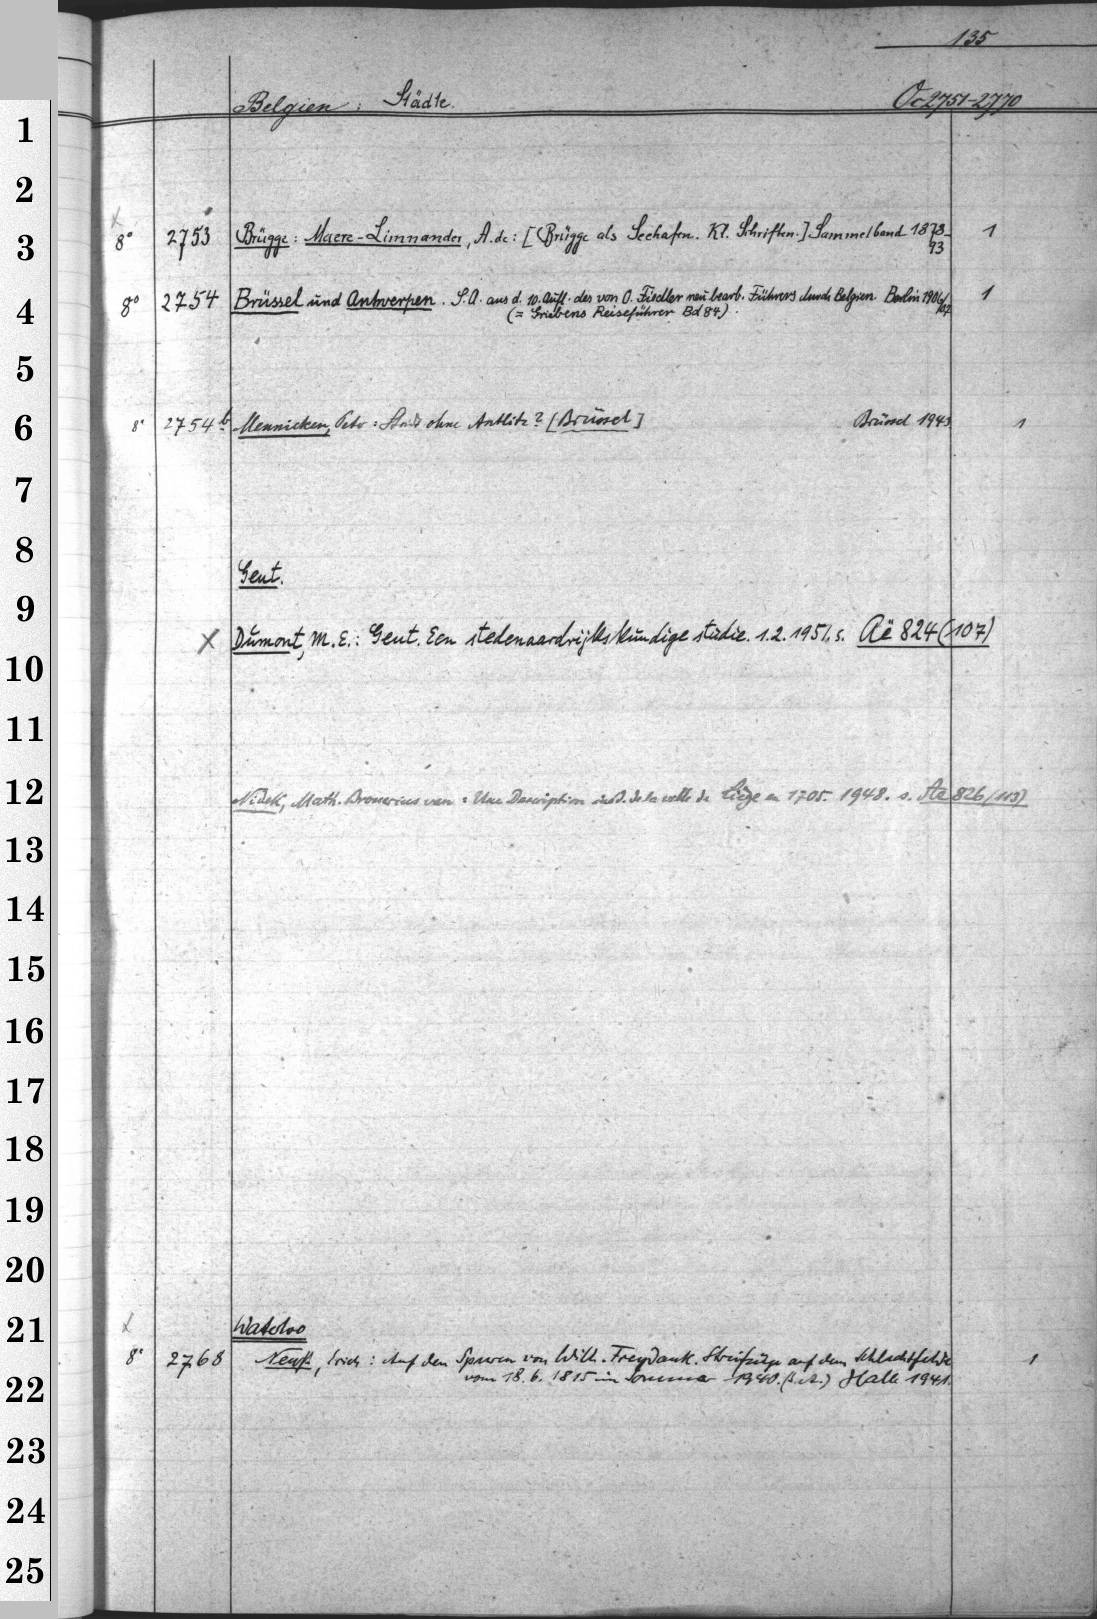 135
Belgien : Städte. Oc 2751-2770
1
2
3
8° 2753 Brügge : Maere-Limnander, A. de : [Brügge als Seehafen. Kl. Schriften.] Sammelband 1873- 1
93
4
8° 2754 Brüssel und Antwerpen. S.A. aus d. 10. Aufl. des von O. Fiedler neu bearb. Führers durch Belgien. Berlin 1906/ 1
(= Griebens Reiseführer Bd 84). 07
5
6
8° 2754 b Mennicken, Peter : Stadt ohne Antlitz? [Brüssel] Brüssel 1943 1
7
8
Gent.
9
X Dumont, M. E.: Gent. Een stedenaardrijkskundige studie. 1.2. 1951. s. Aë 824 (107)
10
11
12
Nidek, Math. Brouerius van : Une Description de la ville de Liège en 1705. 1948. s. Ae 826 (113)
13
14
15
16
17
18
19
20
21
Waterloo
8° 2768 Neuß, Erich : Auf den Spuren von Wilh. Freydank. Streifzüge auf dem Schlachtfelde 1
22
vom 18. 6. 1815 im Sommer 1940. Halle 1941.
23
24
25